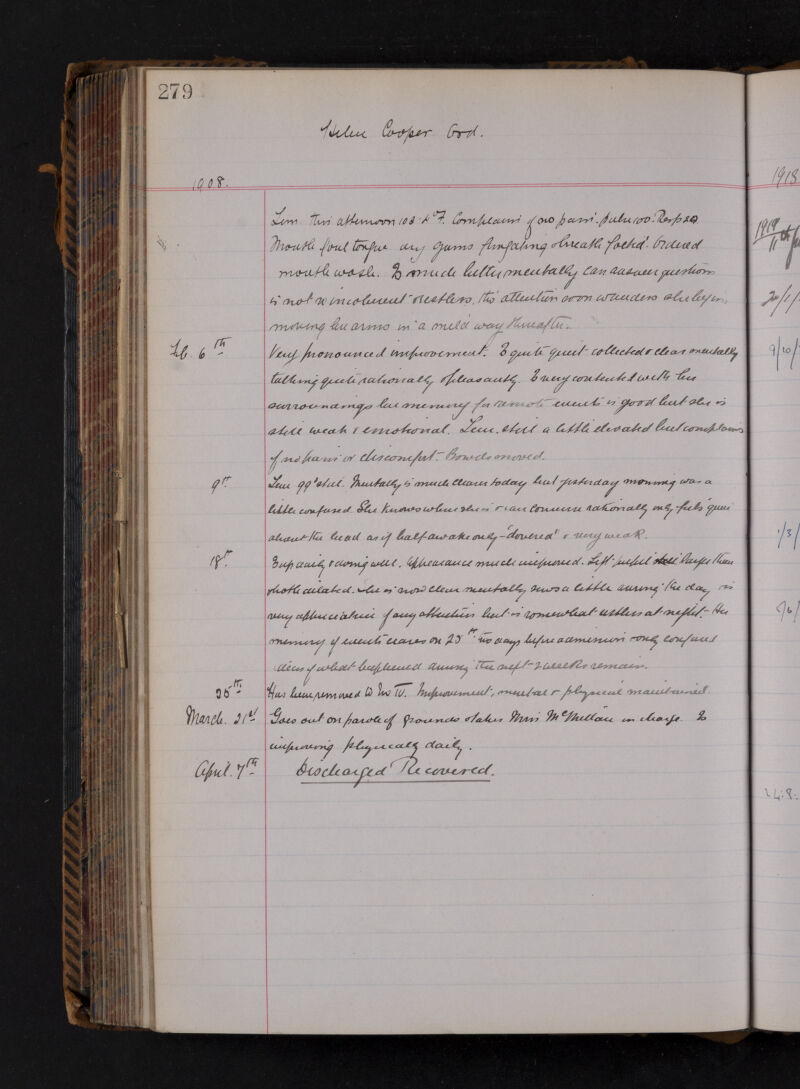 279
Helen Cooper Ord.
1908.
Tem. this afternoon 103.4° F. Complains of no pain. Pulse 100. Resps
Mouth foul tongue dry gums fungating & breath foetid. Ordered
mouth wash. Is much better mentally can answer questions
is not so incoherent & restless, tho attention soon wanders & she begins
moving her arms in a mild way thereafter.
Feb. 6th Very pronounced improvement. Is quite quiet collected & clear mentally
talking quite rationally & pleasantly. Is very contented with her
surroundings her memory for remote events is good but she is
still weak & emotional. Tem. still a little elevated but complains
of no pains or discomfort. Bowels moved.
9th Tem 99° still. Mentally is much clearer today but yesterday morning was a
little confused. She knows where she is & can converse rationally only feels "queer
about the head as if half awake only - 'dovered' & very weak.
18th Is up daily & doing well. Appearance much improved. Left pupil still larger than
& both dilated. She is now clear mentally sews a little during the day is
very appreciative of any attention but is somewhat restless at night. Her
memory of events ceases on 25th two days before admission & only confused
ideas of what happened during the next 2 weeks remain.
25th Has been removed to No IV. Improvement, mental & physical maintained.
March. 21st Goes out on parole of grounds & takes Miss McMillan in charge. Is
improving physically daily.
April. 7th Discharged Recovered.
1918
20/1/
9/10/
1/3/